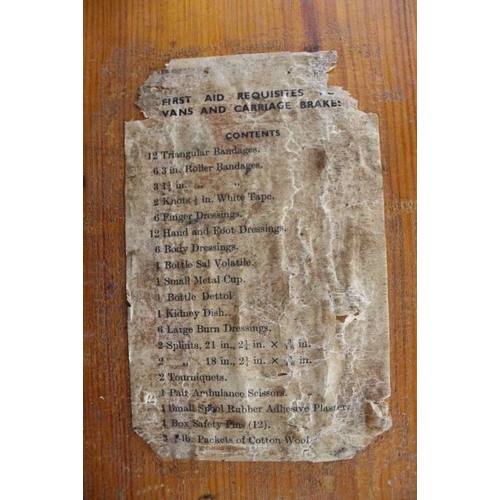 FIRST AID REQUISITES
VANS AND CARRIAGE BRAKES
CONTENTS
12 Triangular Bandages.
6 3 in. Roller Bandages.
3 1½ in. „ „
2 Knots ½ in. White Tape.
6 Finger Dressings.
12 Hand and Foot Dressings.
6 Body Dressings.
1 Bottle Sal Volatile.
1 Small Metal Cup.
1 Bottle Dettol
1 Kidney Dish.
6 Large Burn Dressings.
2 Splints, 21 in., 2¼ in. × in.
2 „ 18 in., 2¼ in. × in.
2 Tourniquets.
1 Pair Ambulance Scissors.
1 Small Spool Rubber Adhesive Plaster.
1 Box Safety Pins (12).
3 lb. Packets of Cotton Wool